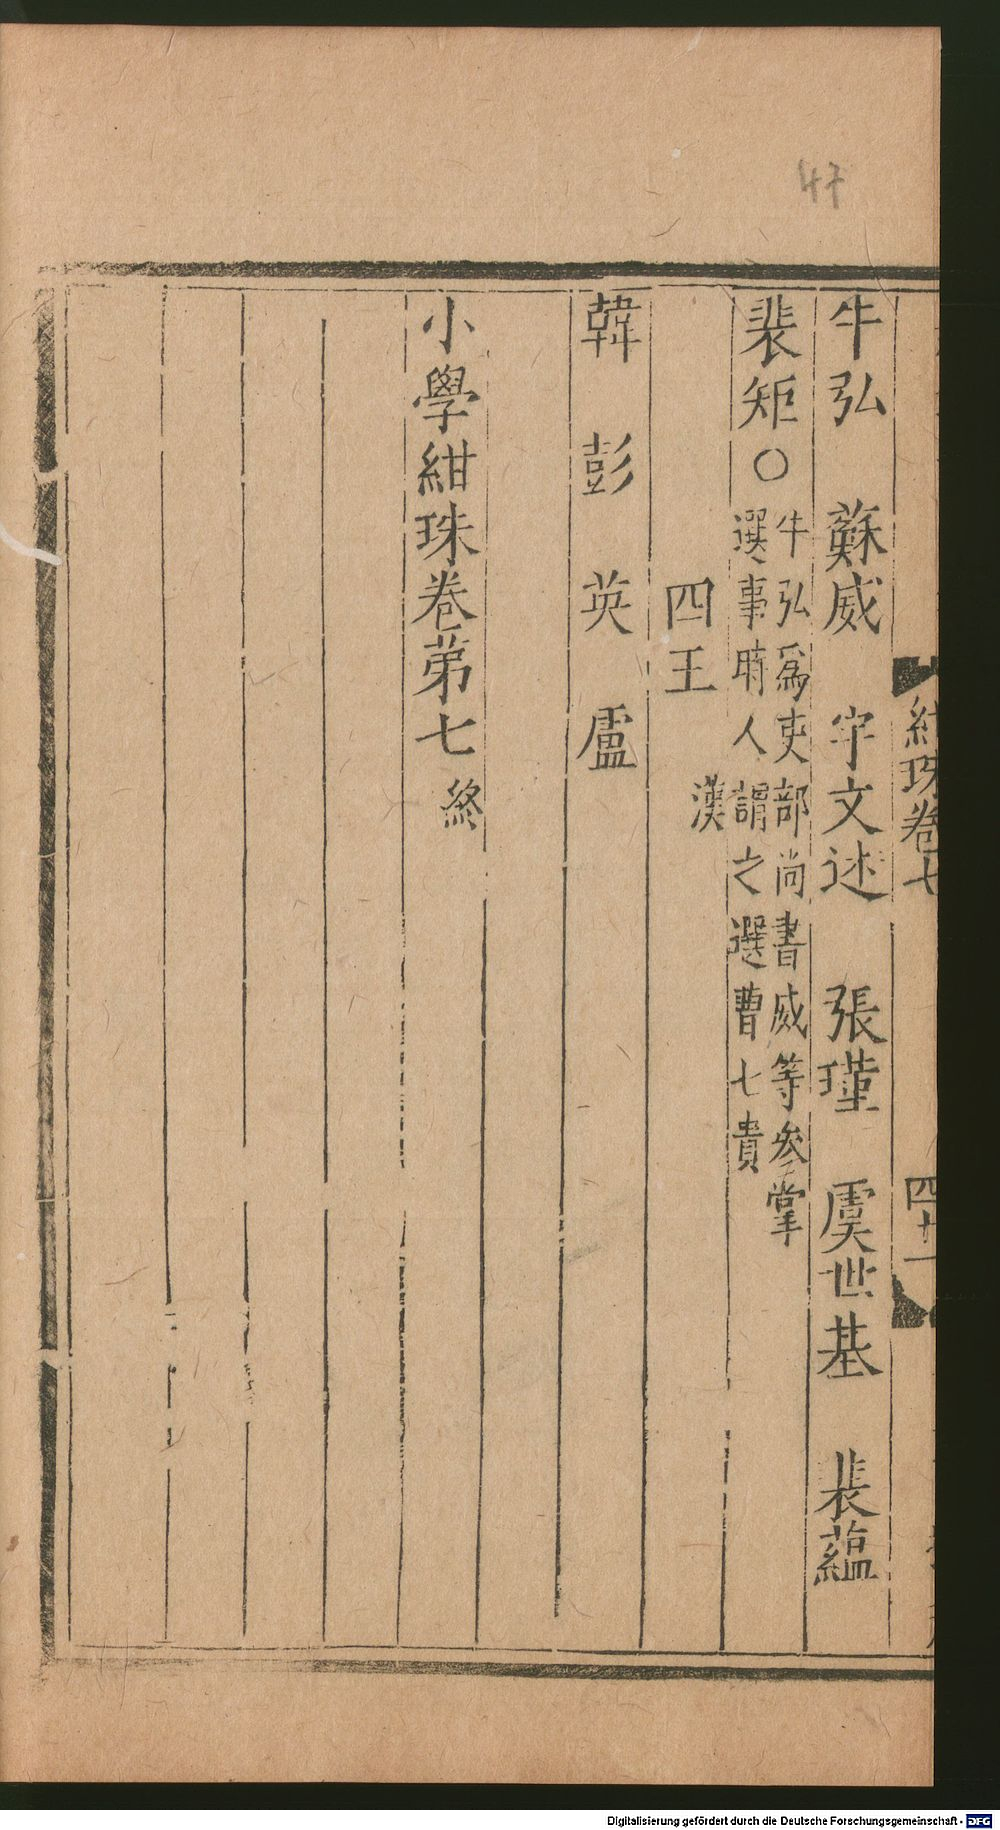 47
紺珠卷七
四十一
牛弘 蘇威 宇文述 張瑾 虞世基 裴蘊
裴矩〇牛弘爲吏部尚書威等叅掌
選事時人謂之選曹七貴
四王漢
韓 彭 英 盧
小學紺珠卷第七終
Digitalisierung gefördert durch die Deutsche Forschungsgemeinschaft - DFG